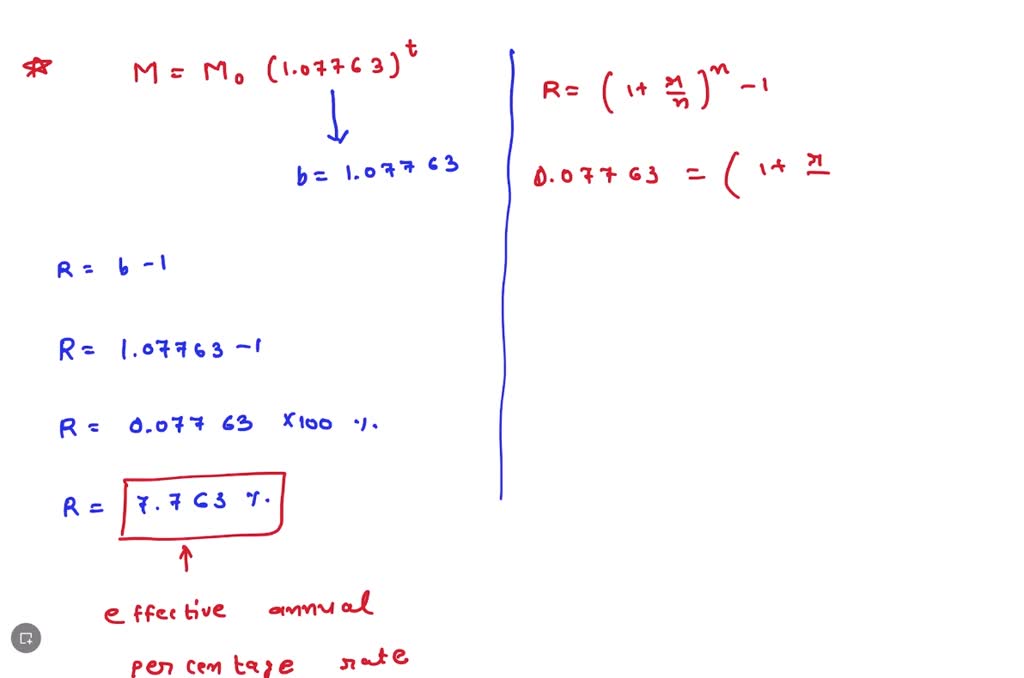 ☆ M = M₀ (1.07763)ᵗ
b = 1.07763
R = b - 1
R = 1.07763 - 1
R = 0.07763 × 100 %
R = 7.763 %
↑
effective annual
percentage rate
R = (1 + r/n)ⁿ - 1
0.07763 = (1 + r